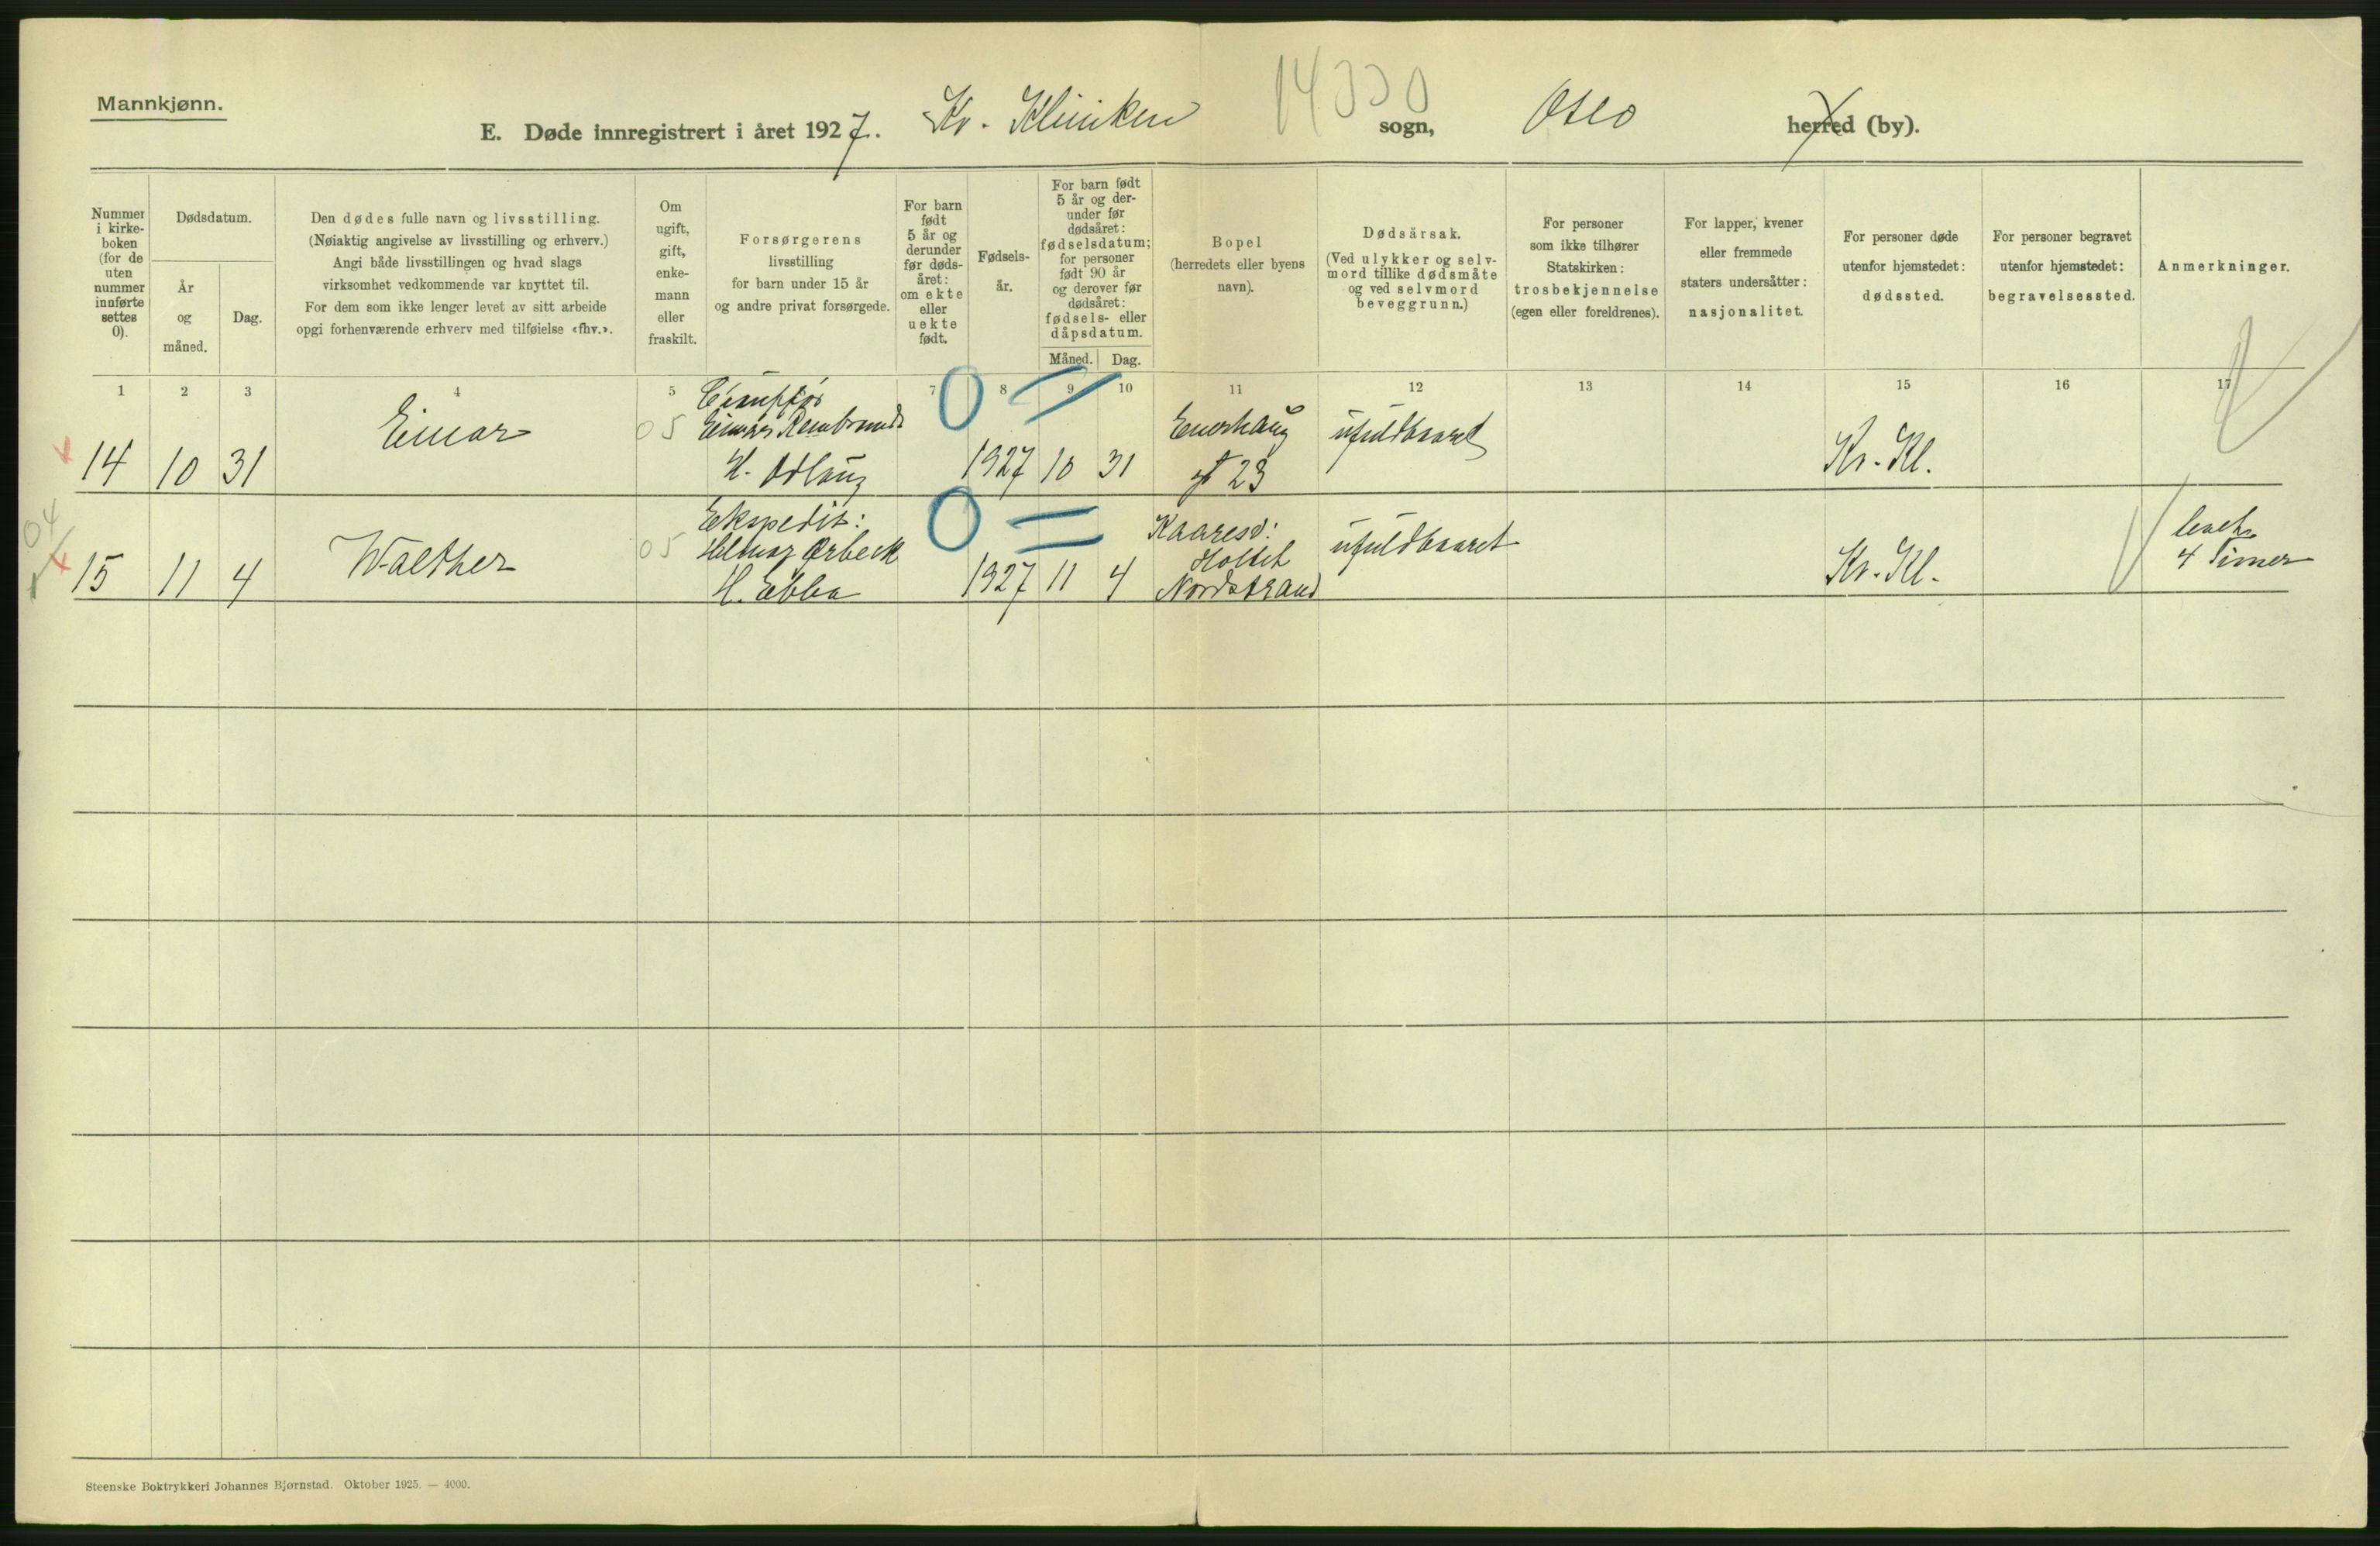 Mannkjønn.
E. Døde innregistrert i året 1927. Kv. Kliniken 14330 sogn, Oslo herred (by).
Nummer i kirke-boken (for de uten nummer innførte settes 0).
Dødsdatum.
År og måned.
Dag.
Den dødes fulle navn og livsstilling.
(Nøiaktig angivelse av livsstilling og erhverv.)
Angi både livsstillingen og hvad slags
virksomhet vedkommende var knyttet til.
For dem som ikke lenger levet av sitt arbeide
opgi forhenværende erhverv med tilføielse «fhv.».
Om ugift, gift, enke-mann eller fraskilt.
Forsørgerens
livsstilling
for barn under 15 år
og andre privat forsørgede.
For barn født 5 år og derunder før døds-året: om ekte eller uekte født.
Fødsels-år.
For barn født 5 år og der-under før dødsåret: fødselsdatum; for personer født 90 år og derover før dødsåret: fødsels- eller dåpsdatum.
Måned.
Dag.
Bopel
(herredets eller byens
navn).
Dødsårsak.
(Ved ulykker og selv-
mord tillike dødsmåte
og ved selvmord
beveggrunn.)
For personer
som ikke tilhører
Statskirken:
trosbekjennelse
(egen eller foreldrenes).
For lapper, kvener
eller fremmede
staters undersåtter:
nasjonalitet.
For personer døde
utenfor hjemstedet:
dødssted.
For personer begravet
utenfor hjemstedet:
begravelsessted.
Anmerkninger.
1 2 3 4 5 7 8 9 10 11 12 13 14 15 16 17
14 10 31 Einar 05
Einar Rembrandt
H. Odlaug
0 = 1927 10 31
Enerhaug
gt 23
ufuldbaaret
Kv. Kl.
04
15 11 4 Walther 05
Ekspedit:
Helmar Ørbeck
H. Ebba
0 = 1927 11 4
Kaaresv:
Holtet
Nordstrand
ufuldbaaret
Kv. Kl.
levet
4 Timer
Steenske Boktrykkeri Johannes Bjørnstad. Oktober 1925. — 4000.